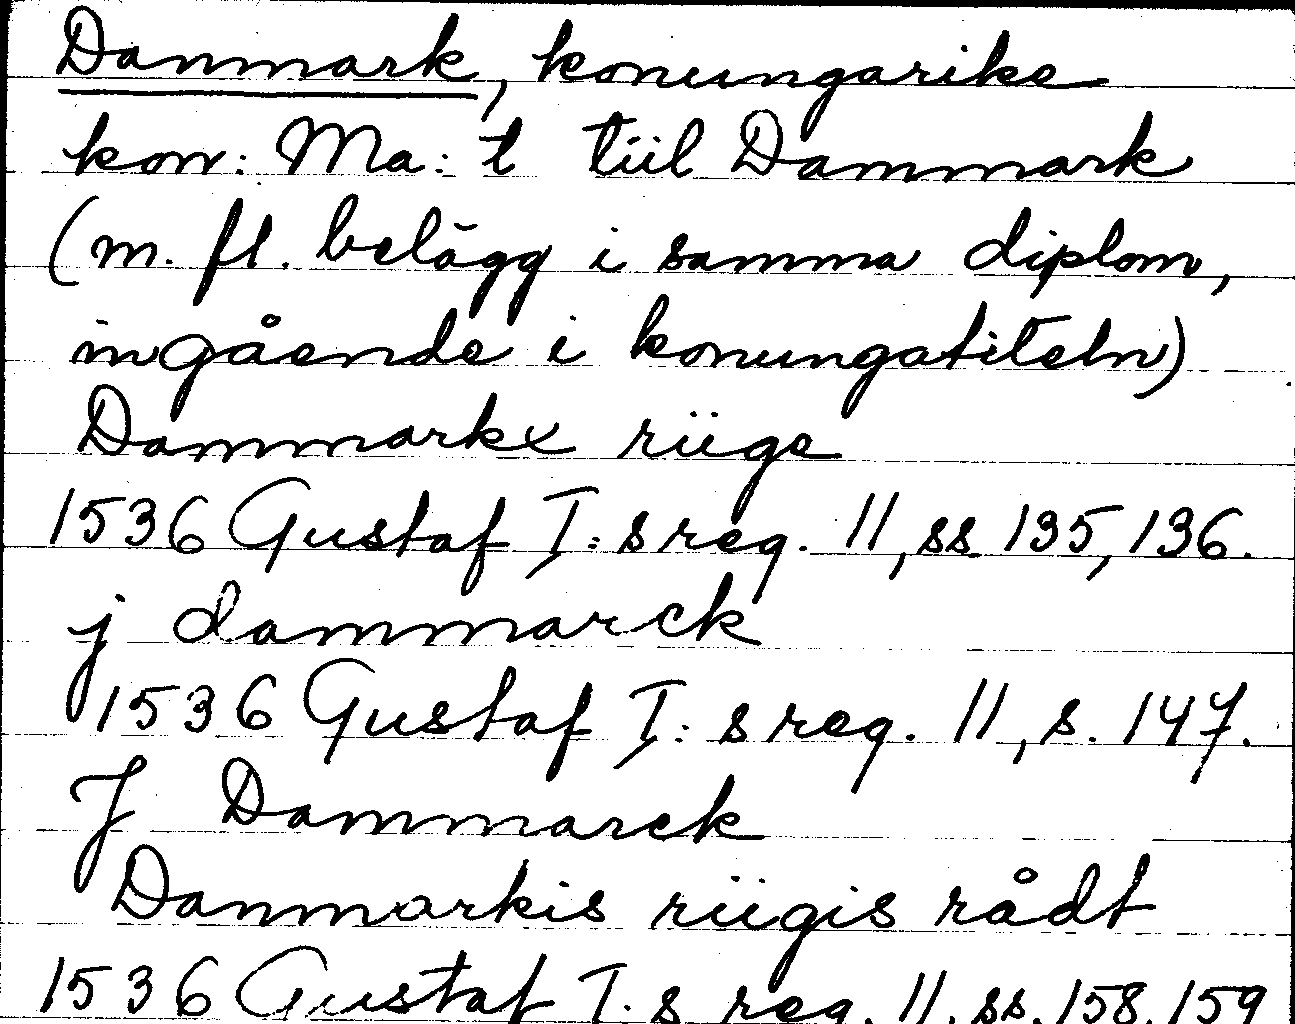 Danmark, konungarike
kon: Ma: t tiil Dammark
(m. fl. belägg i samma diplom,
ingående i konungatiteln)
Dammarkx riige
1536 Gustaf I:s reg. 11, ss 135, 136.
j dammarck
1536 Gustaf I:s reg. 11, s. 147.
J Dammarck
Danmarkis riigis rådt
1536 Gustaf I:s reg. 11, ss. 158, 159